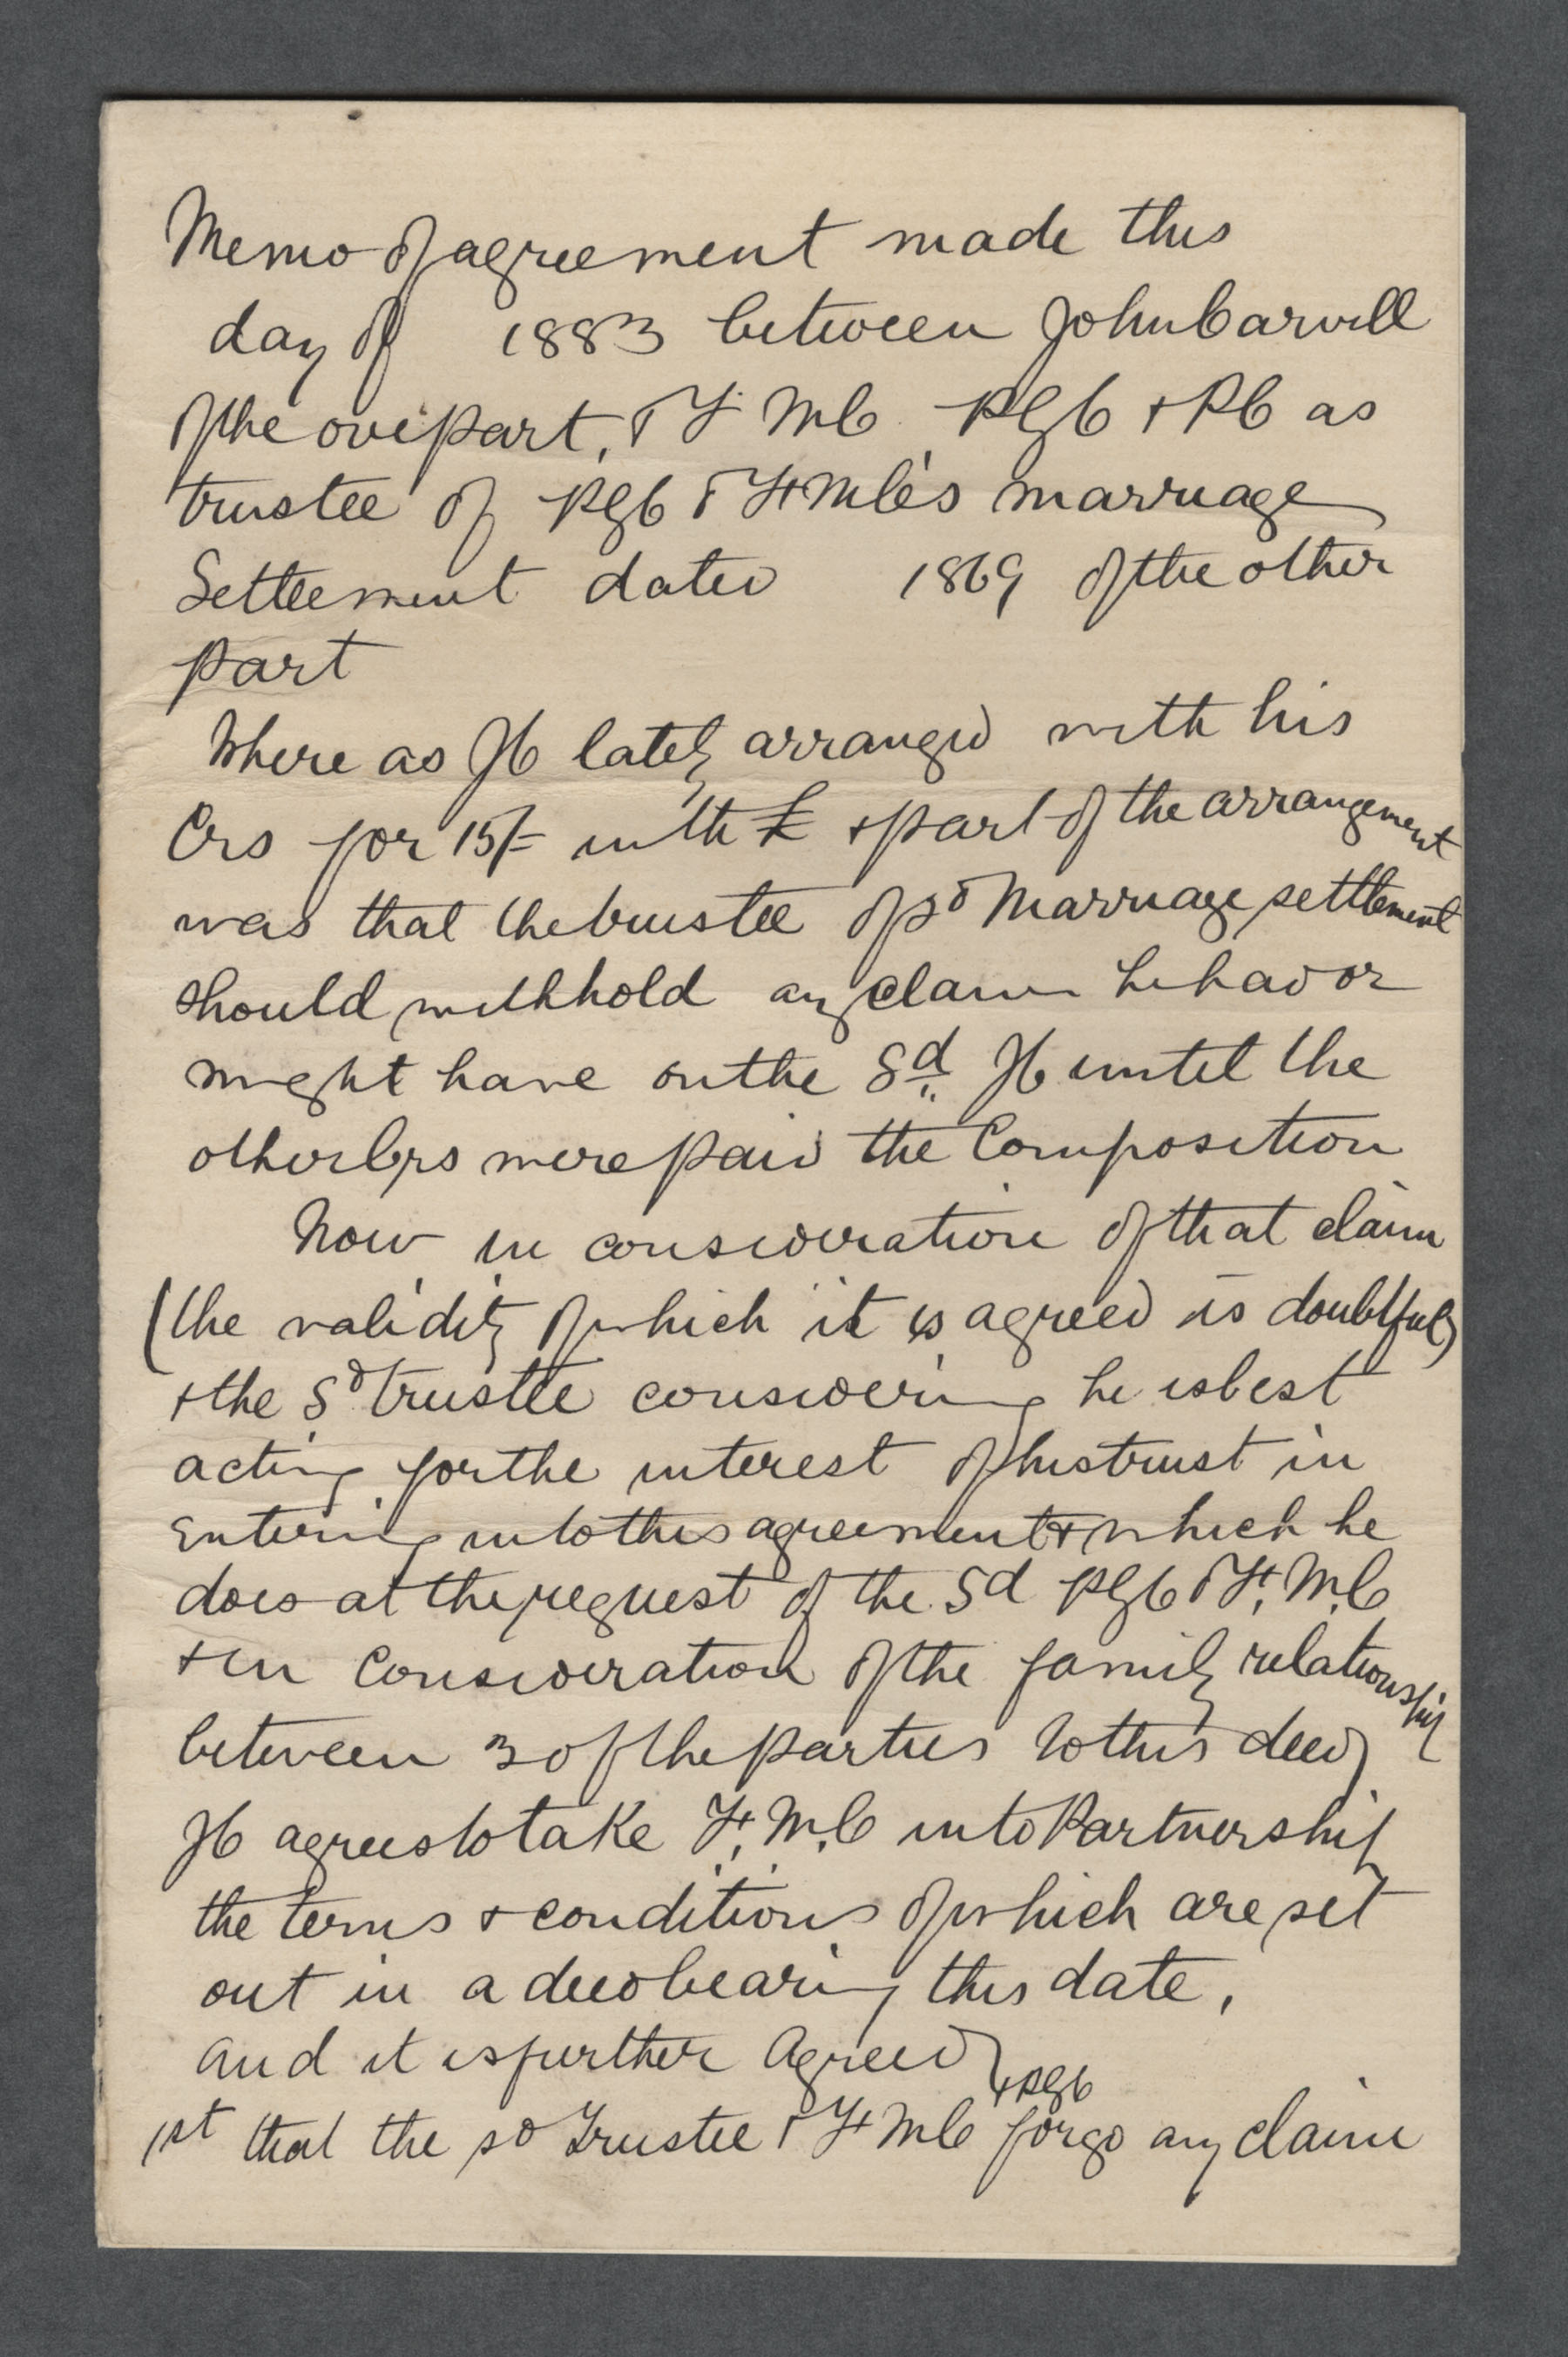 Memo of agreement made this
day of 1883 between John Carvill
of the one part, & F MC RGC & RC as
trustee of RGC & F MC's marriage
Settlement dated 1869 of the other
part
Where as JC lately arranged with his
Crs for 15/= in the £ & part of the arrangement
was that the trustee of sd Marriage settlement
should withhold any claim he had or
might have on the Sd JC until the
other Crs were paid the Composition
Now in consideration of that claim
(the validity of which it is agreed is doubtful)
& the Sd trustee considering he is best
acting for the interest of his trust in
Entering into this agreement & which he
does at the request of the Sd RGC & F. M.C
& in Consideration of the family relationship
between 3 of the parties to this deed
JC agrees to take F. M.C into Partnership
the terms & conditions of which are set
out in a deed bearing this date,
And it is further Agreed
& RGC
1st that the sd Trustee & F MC forgo any claim